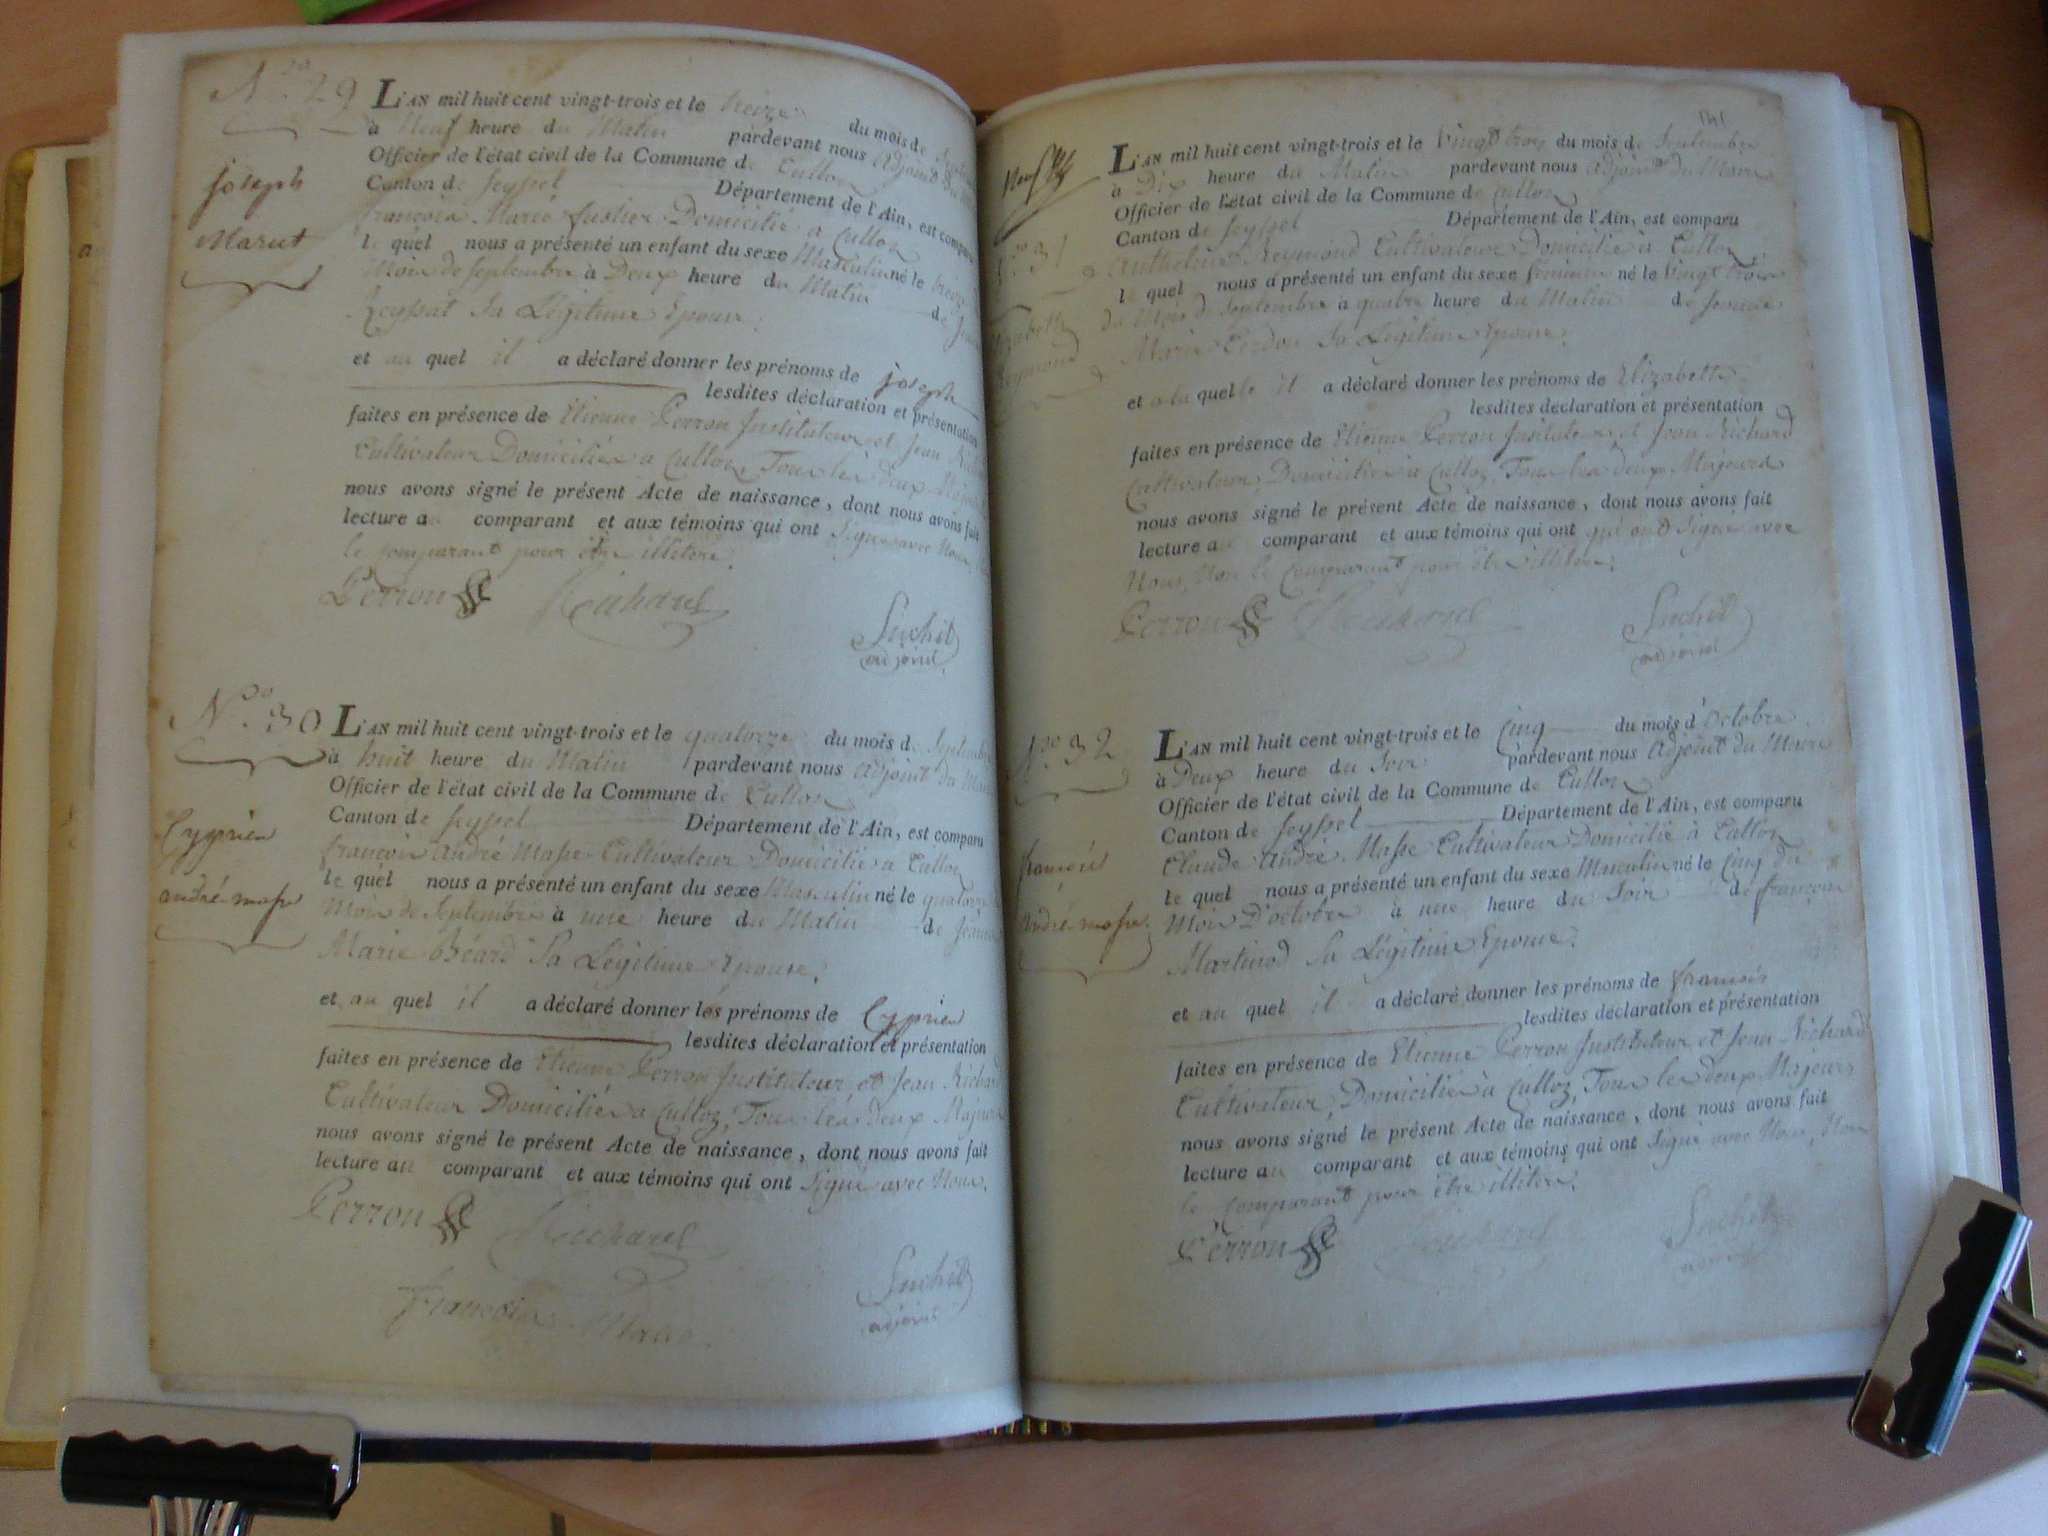 N.ro 29
Joseph
Marut
L'AN mil huit cent vingt-trois et le treize du mois de
à Neuf heure du Matin pardevant nous Adjoint du
Officier de l'état civil de la Commune de Culloz
Canton de Seyssel Département de l'Ain, est comparu
françois Marie Domicilié à Culloz
le quel nous a présenté un enfant du sexe Masculin né le treize
Mois de Septembre à Deux heure du Matin de
Reyssat Sa Légitime Epouse.
et au quel il a déclaré donner les prénoms de joseph
lesdites déclaration et présentation
faites en présence de Etienne Perron Instituteur et Jean
Cultivateur Domiciliés à Culloz, Tous les deux
nous avons signé le présent Acte de naissance, dont nous avons fait
lecture au comparant et aux témoins qui ont Signé avec Nous
le comparant pour être illiteré.
Perron Richard
Suchet
adjoint
N.ro 30
Cyprien
andré-masse
L'AN mil huit cent vingt-trois et le quatorze du mois de Septembre
à huit heure du Matin pardevant nous Adjoint du
Officier de l'état civil de la Commune de Culloz
Canton de Seyssel Département de l'Ain, est comparu
françois André Masse Cultivateur Domicilié à Culloz
le quel nous a présenté un enfant du sexe Masculin né le quatorze
Mois de Septembre à une heure du Matin de
Marie Béard Sa Légitime Epouse.
et au quel il a déclaré donner les prénoms de Cyprien
lesdites déclaration et présentation
faites en présence de Etienne Perron Instituteur et Jean Richard
Cultivateur Domiciliés à Culloz, Tous les deux Majeurs
nous avons signé le présent Acte de naissance, dont nous avons fait
lecture au comparant et aux témoins qui ont Signé avec Nous.
Perron Richard
Suchet
françois
adjoint
141
31
Elizabeth
Reymond
L'AN mil huit cent vingt-trois et le Vingt trois du mois de Septembre
à Dix heure du Matin pardevant nous adjoint du Maire
Officier de l'état civil de la Commune de Culloz
Canton de Seyssel Département de l'Ain, est comparu
Anthelme Reymond Cultivateur Domicilié à Culloz
le quel nous a présenté un enfant du sexe féminin né le Vingt trois
du Mois de Septembre à quatre heure du Matin de
Marie Cerdon Sa Légitime Epouse.
et a la quelle il a déclaré donner les prénoms de Elizabeth
lesdites déclaration et présentation
faites en présence de Etienne Perron Instituteur et Jean Richard
Cultivateur, Domiciliés à Culloz, Tous les deux Majeurs
nous avons signé le présent Acte de naissance, dont nous avons fait
lecture au comparant et aux témoins qui ont qui ont Signé avec
Nous, Non le Comparant pour être illiteré.
Perron Richard
Suchet
adjoint
N.ro 32
françois
André-masse
L'AN mil huit cent vingt-trois et le Cinq du mois d'Octobre
à Deux heure du Soir pardevant nous Adjoint du Maire
Officier de l'état civil de la Commune de Culloz
Canton de Seyssel Département de l'Ain, est comparu
Claude André Masse Cultivateur Domicilié à Culloz
le quel nous a présenté un enfant du sexe Masculin né le Cinq du
Mois D'octobre à une heure du Soir de françoise
Martinod Sa Légitime Epouse.
et au quel il a déclaré donner les prénoms de françois
lesdites déclaration et présentation
faites en présence de Etienne Perron Instituteur et Jean Richard
Cultivateur, Domiciliés à Culloz, Tous les deux Majeurs
nous avons signé le présent Acte de naissance, dont nous avons fait
lecture au comparant et aux témoins qui ont Signé avec Nous, Non
le Comparant pour être illiteré.
Perron Richard Suchet